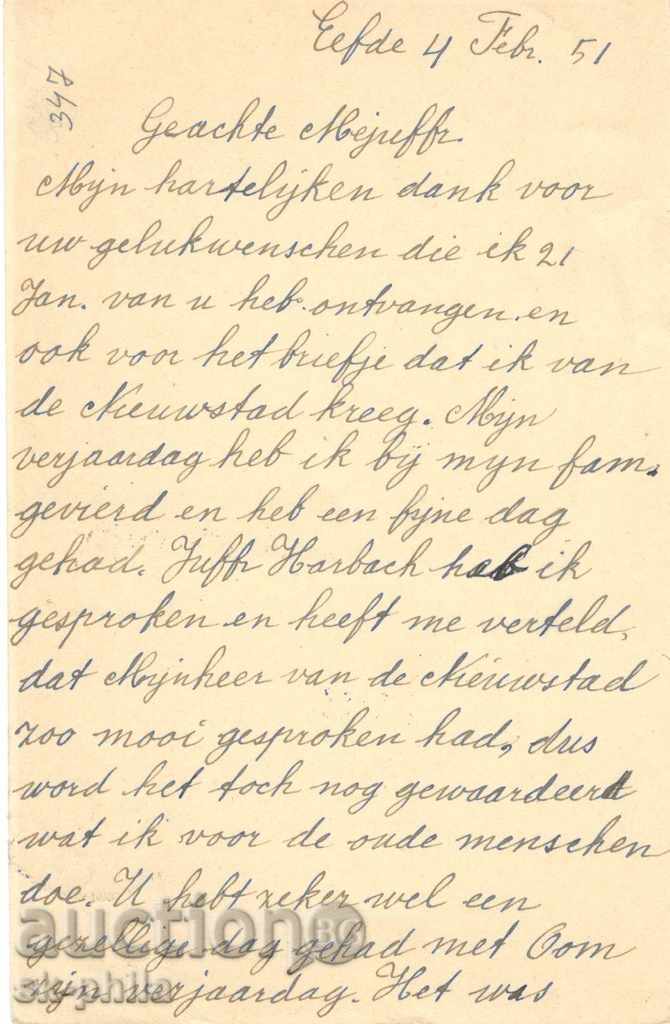 Eefde 4 Febr. 51
347
Geachte Mejuffr.
Mijn hartelijken dank voor
uw gelukwenschen die ik 21
Jan. van u heb ontvangen en
ook voor het briefje dat ik van
de Nieuwstad kreeg. Mijn
verjaardag heb ik bij mijn fam.
gevierd en heb een fijne dag
gehad. Juffr Harbach heb ik
gesproken en heeft me verteld,
dat Mijnheer van de Nieuwstad
zoo mooi gesproken had, dus
word het toch nog gewaardeerd
wat ik voor de oude menschen
doe. U hebt zeker wel een
gezellige dag gehad met Oom
zijn verjaardag. Het was
auction BG
sk-phila